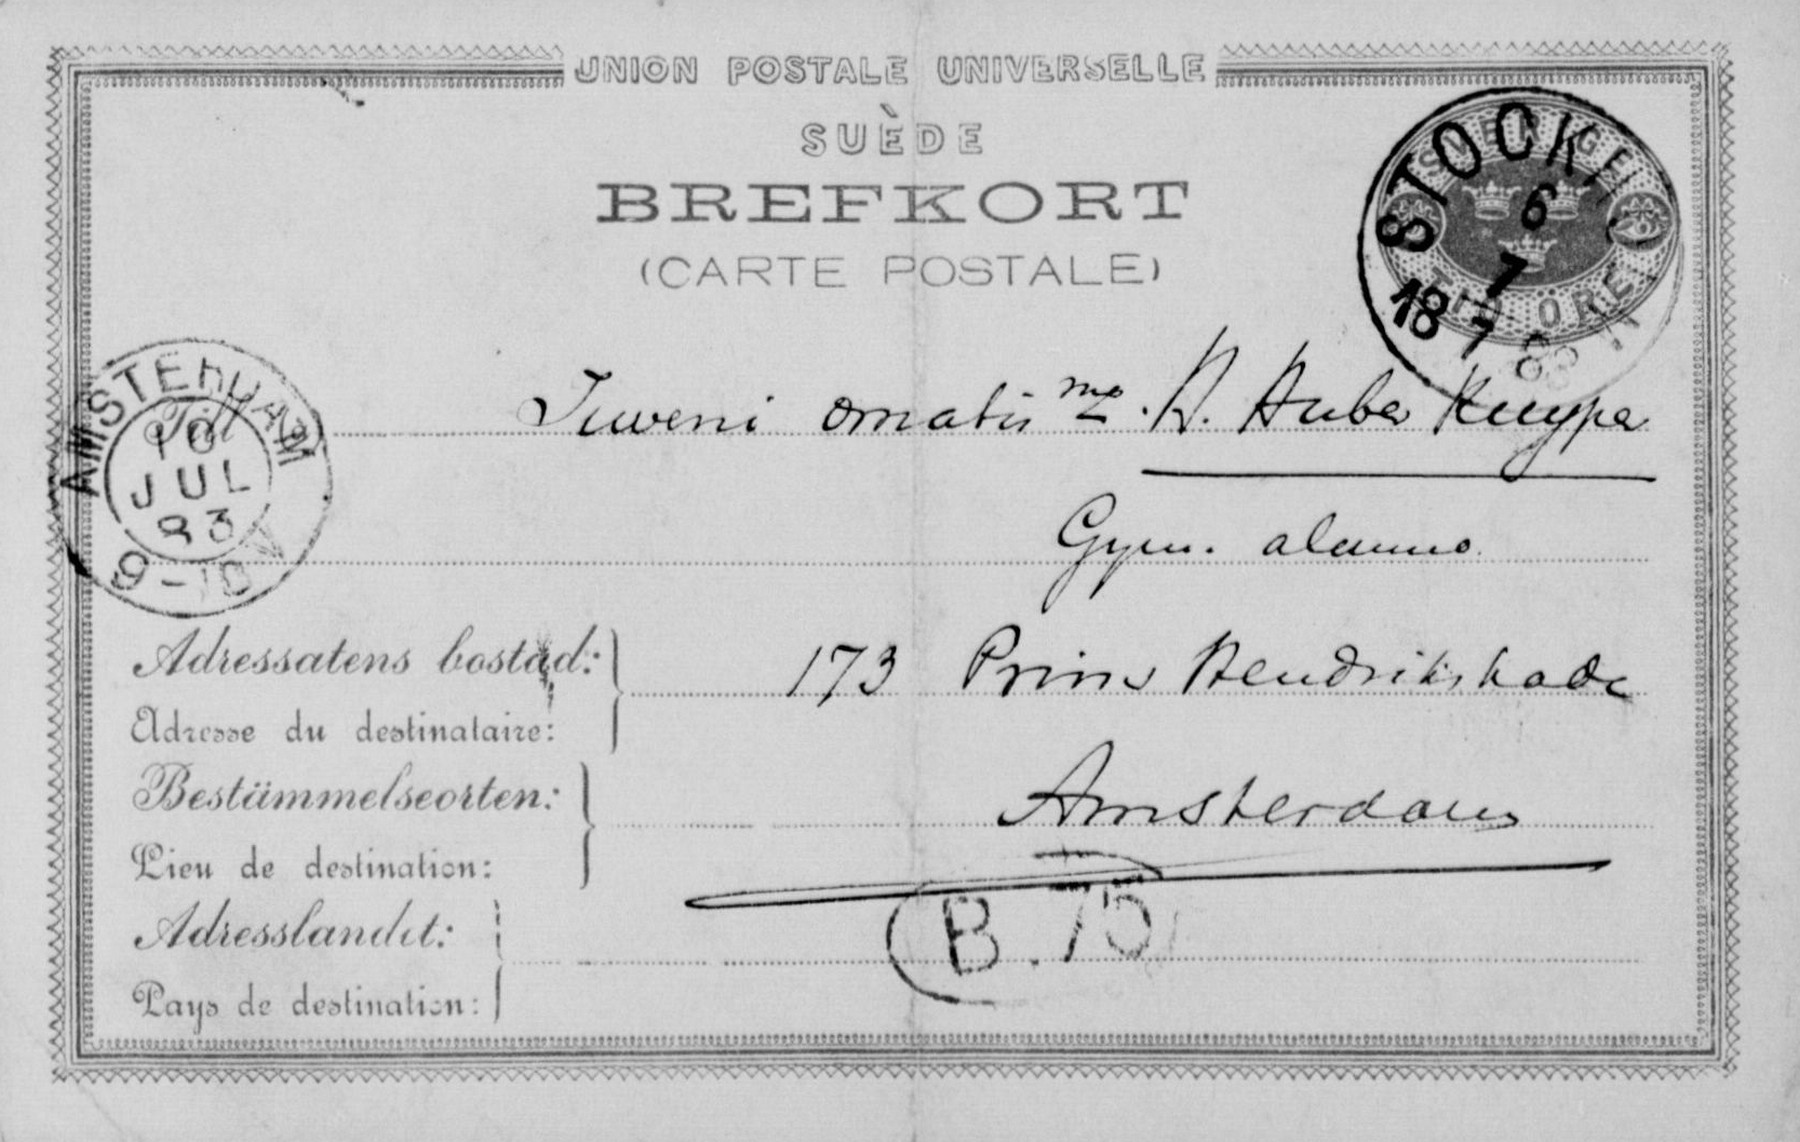 UNION POSTALE UNIVERSELLE
SUÈDE
BREFKORT
(CARTE POSTALE)
SVERIGE
TIO ÖRE
STOCKH
6
7
18 83
AMSTERDAM
10
JUL
83
9-10 V
Till Juveni ornatiss mo. H. Huber Kuyper
Gym. alumno.
Adressatens bostad: 173 Prins Hendrikskade
Adresse du destinataire:
Bestämmelseorten: Amsterdam
Lieu de destination:
B. 75
Adresslandet:
Pays de destination: